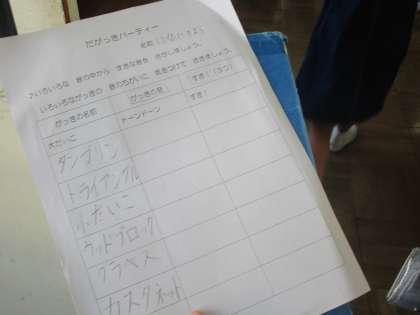 だがっきパーティー
名前
♪いろいろな 音の中から すきな音を さがしましょう。
いろいろながっきの 音のちがいに 気をつけて ききましょう。
がっきの名前 がっきの音 すき！(3つ)
大だいこ ドーンドーン すき！
タンブリン
トライアングル
小だいこ
ウッドブロック
クラベス
カスタネット